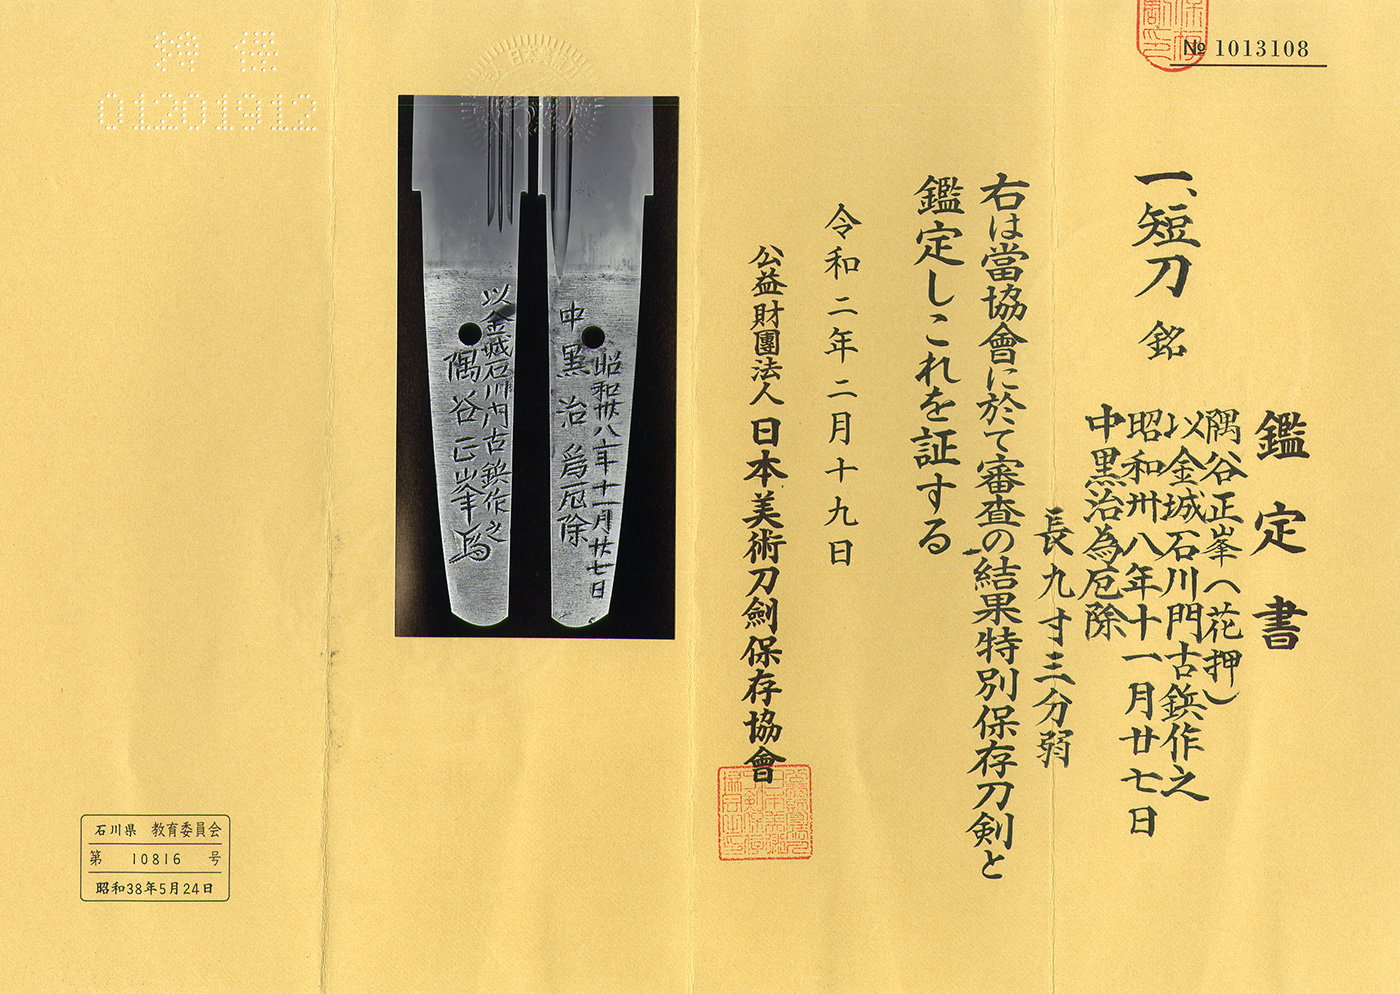 № 1013108
鑑定書
一、短刀 銘
隅谷正峯（花押）
以金城石川門古鋲作之
昭和卅八年十一月廿七日
中黒治為厄除
長九寸三分弱
右は當協會に於て審査の結果特別保存刀剣と
鑑定しこれを証する
令和二年二月十九日
公益財團法人 日本美術刀劍保存協會
中黒治為厄除
昭和卅八年十一月廿七日
以金城石川門古鋲作之
隅谷正峯
特保
01201912
石川県 教育委員会
第 10816 号
昭和38年5月24日